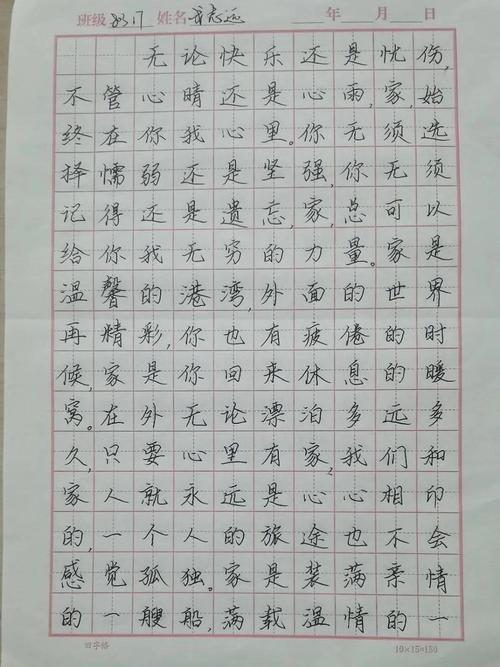 班级 姓名 志远 年 月 日
无论快乐还是忧伤,
不管心晴还是心雨,家,始
终在你我心里。你无须选
择懦弱还是坚强,你无须
记得还是遗忘,家,总可以
给你我无穷的力量。家是
温馨的港湾,外面的世界
再精彩,你也有疲倦的时
候,家是你回来休息的暖
窝。在外无论漂泊多远多
久,只要心里有家,我们和
家人就永远是心心相印
的,一个人的旅途也不会
感觉孤独。家是装满亲情
的一艘船,满载温情的一
田字格 10×15=150